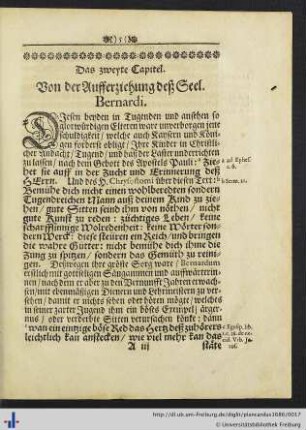 )5(
Das zweyte Capitel.
Von der Aufferziehung deß Seel.
Bernardi.
DJesen beyden in Tugenden und ansehen so
glorwürdigen Elteren ware unverborgen jene
schuldigkeit / welche auch Kaysern und Köni-
gen forderist obligt / Jhre Kinder in Christli-
cher Andacht / Tugend / und haß der Laster underrichten
zu lassen / nach dem Gebott des Apostels Pauli: a Zie-
het sie auff in der Zucht und Ermneung deß
HErrn. Und des H. Chrysostomi über disen Text: b
Bemühe dich nicht einen wohlberedten sondern
Tugendreichen Mann auß deinem Kind zu zie-
hen / gute Sitten seind ihm von nöthen / nicht
gute Kunst zu reden: züchtiges Leben / keine
scharffsinnige Wolredenheit: keine Wörter son-
dern Werck: dise steüren ein Reich / und bringen
die wahre Gütter: nicht bemühe dich ihme die
Zung zu spitzen / sondern das Gemüth zu reini-
gen. Deßwegen ihre gröste Sorg ware / Bernardum
erstlich mit gottseligen Säugammen und auffwärterin-
nen / nach dem er aber zu den Vernunfft Jahren erwach-
sen / mit ebenmäßigen Dienern und Lehrmeistern zu ver-
sehen / damit er nichts sehen oder hören mögte / welches
in seiner zarter Jugend ihm ein böses Exempel / ärger-
nus / oder verderbte Sitten verursachen könte: dann
c wan ein eintzige böse Red das Hertz deß zuhörers
leichtlich kan anstecken / wie viel mehr kan das
A iij
stäte
a ad Ephes.
c. 6.
b Serm. 21.
http://dl.ub.uni-freiburg.de/diglit/plancardus1686/0017
Universitätsbibliothek Freiburg